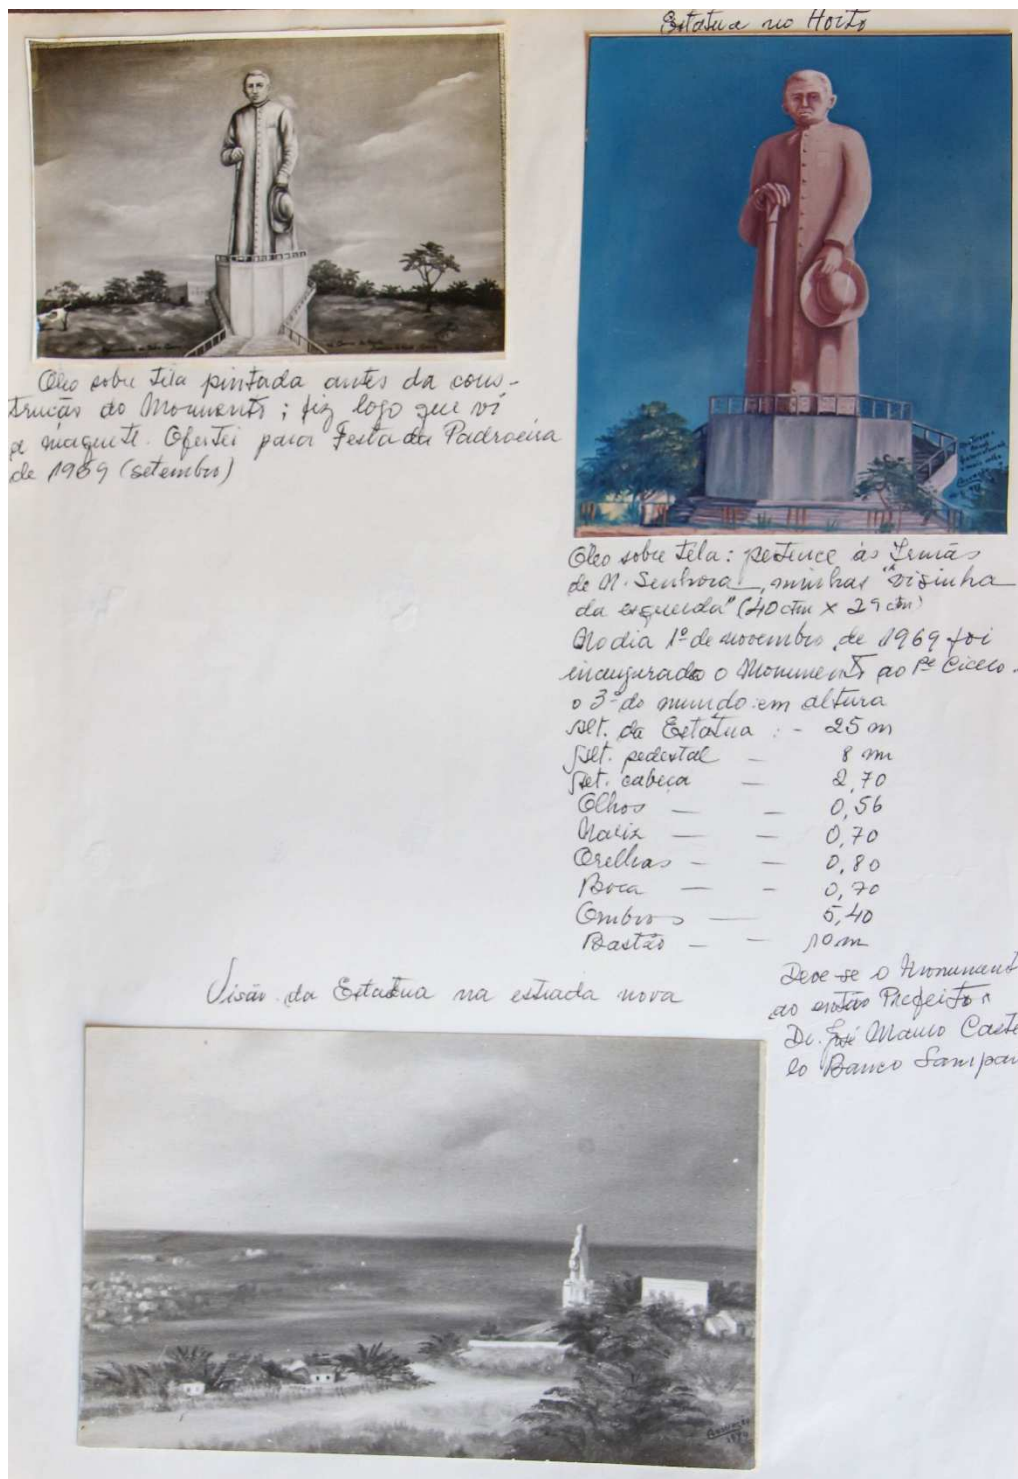 Estatua no Horto
Oleo sobre tela pintada antes da cons-
trucão do Monumento; fiz logo que vi
a maquete. Ofertei para Festa da Padroeira
de 1969 (setembro)
Oleo sobre tela: pertence às Irmãs
de N. Senhora, minhas "visinha
da esquerda" (40 ctm x 29 ctm)
No dia 1º de novembro de 1969 foi
inaugurado o Monumento ao Pe Cicero.
o 3º do mundo em altura
Alt. da Estatua : - 25 m
Alt. pedestal - 8 m
Alt. cabeca - 2,70
Olhos — - 0,56
Nariz — - 0,70
Orelhas - - 0,80
Boca — - 0,70
Ombros — 5,40
Bastão - - 10 m
Deve-se o Monument
ao então Prefeito
Dr. José Mauro Caste
lo Banco Sampai
Visão da Estatua na estrada nova
Assunção